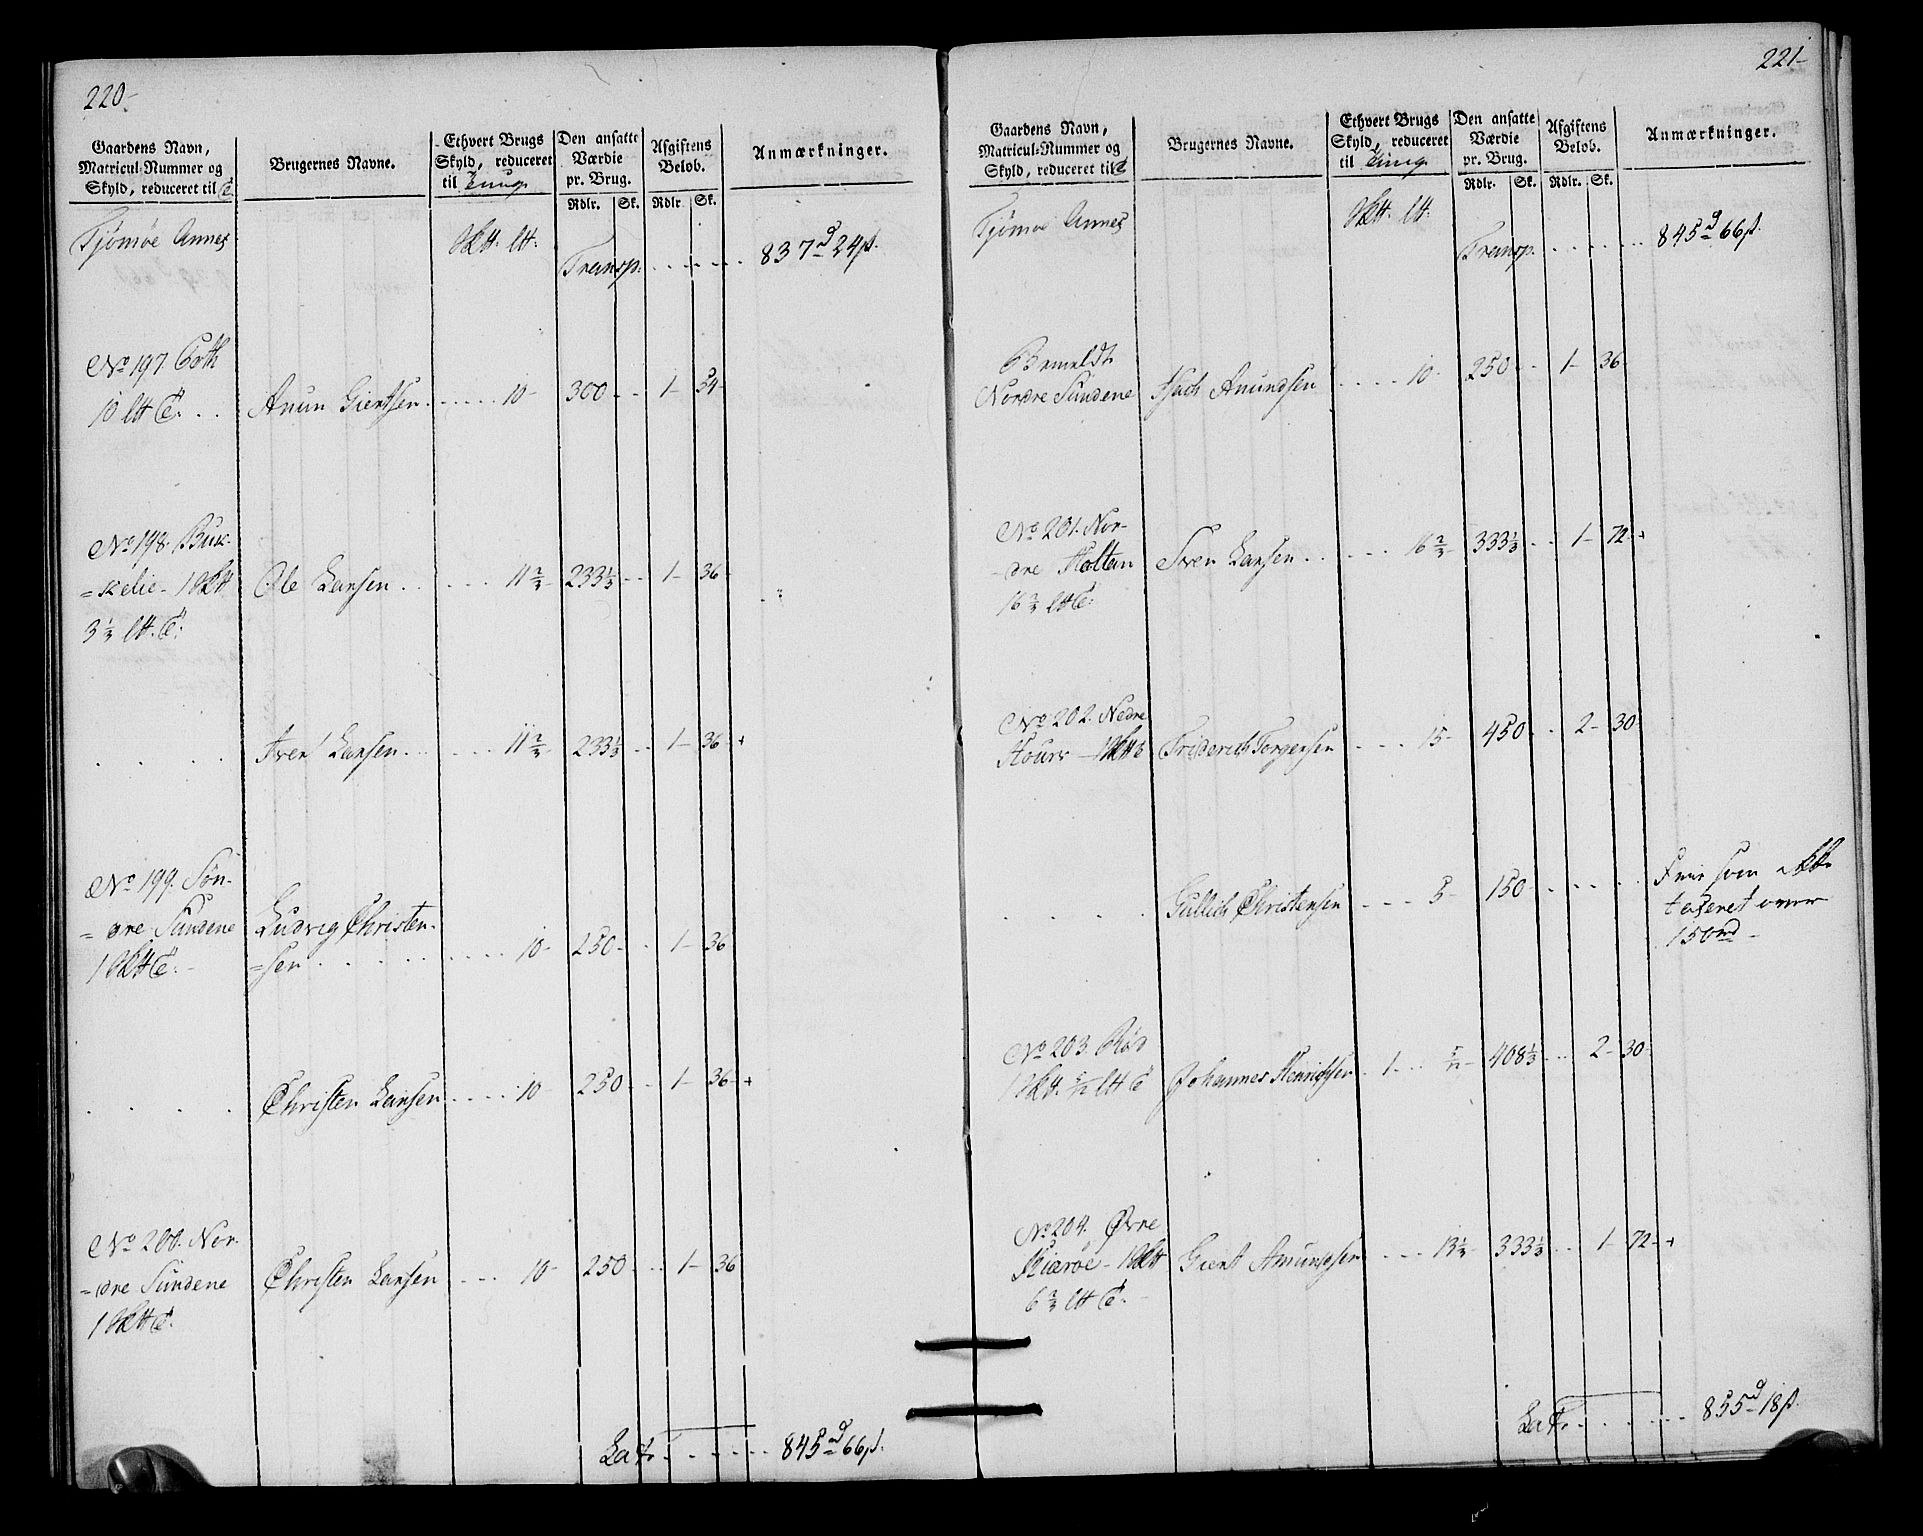 220-
Gaardens Navn,
Matricul-Nummer og
Skyld, reduceret til
Brugernes Navne.
Ethvert Brugs
Skyld, reduceret
til Tung
Den ansatte
Værdie
pr. Brug.
Rdlr. Sk.
Afgiftens
Beløb.
Rdlr. Sk.
Anmærkninger.
Tjømøe Annex
Transp. . . . . . 837 24
No 197.
10
300 - - 1- 54-
No 198. Busk-
=kelie -
3 1/3
Ole Larsen . . . . . 11 2/3 - 233 1/3 - - 1- 36-
Larsen . . . . . 11 2/3 - 233 1/3 - - 1- 36- +
No 199. Søn-
=dre Sundene
1
Ludvig Christen-
=sen . . . . . . . 10- 250- - 1- 36
Christen Larsen . . . . 10- 250 - - 1- 36- +
No 200. Nor-
=dre Sundene
1
Christen Larsen . . . 10- 250- - 1- 36
Lat. . . . . . 845 66
221-
Gaardens Navn,
Matricul-Nummer og
Skyld, reduceret til
Brugernes Navne.
Ethvert Brugs
Skyld, reduceret
til Tung
Den ansatte
Værdie
pr. Brug.
Rdlr. Sk.
Afgiftens
Beløb.
Rdlr. Sk.
Anmærkninger.
Tjømøe Annex
Transp. . . . . . 845 66
Bemeldte
Nordre Sundene
Isach Amundsen . . . . 10- 250 - - 1- 36-
No 201. Nor-
dre Holtan
16 2/3
Sven Larsen . . . . . 16 2/3 - 333 1/3 - - 1- 72- +
No 202. Nedre
Friderich Torgersen . . . 15- 450 - - 2- 30-
Gullich Christensen . . . 5- 150- . . . . .
som
taxeret under
150
No 203. Rød
1 5/12
Johannes Henrichsen . 1 . . 5/12 - 408 1/3 . . 2- 30-
No 204. Øvre
6 2/3
Amundsen . . . 13 1/3 - 333 1/3 . . 1- 72- +
Lat. . . . . . 855 18